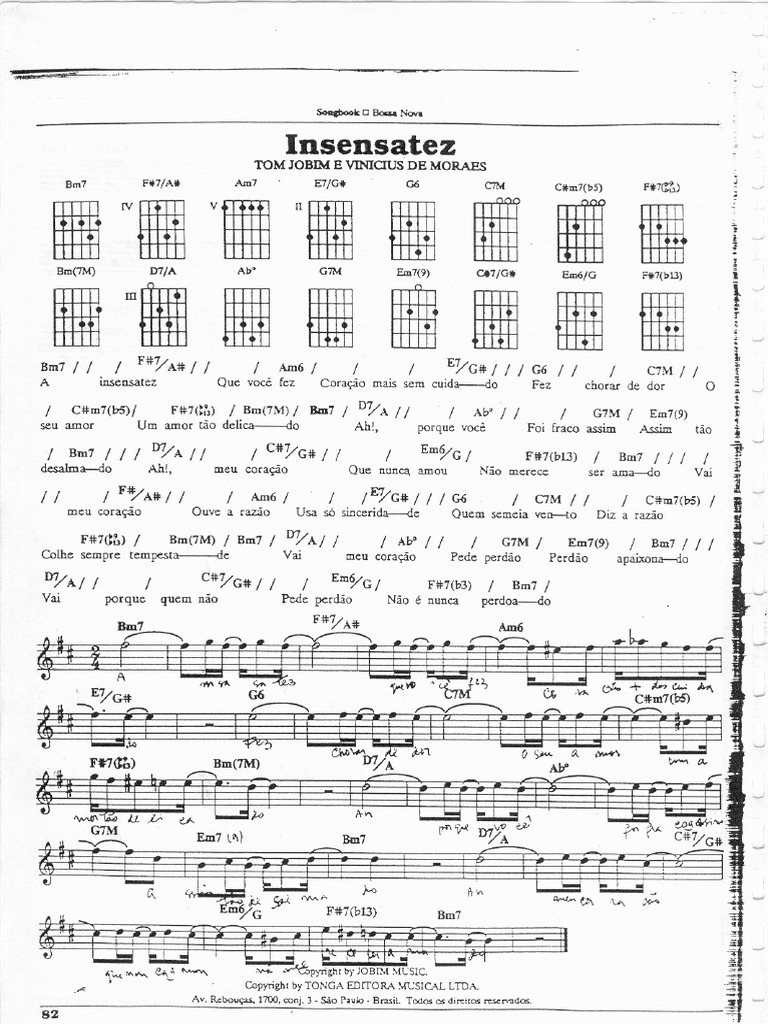 Songbook □ Bossa Nova
Insensatez
TOM JOBIM E VINICIUS DE MORAES
Bm7 F#7/A# Am7 E7/G# G6 C7M C#m7(b5) F#7(b9 b13)
IV V II
Bm(7M) D7/A Ab° G7M Em7(9) C#7/G# Em6/G F#7(b13)
III
Bm7 / / / F#7/A# / / / Am6 / / / E7/G# / / / G6 / / / C7M / /
A insensatez Que você fez Coração mais sem cuida—do Fez chorar de dor O
/ C#m7(b5)/ F#7(b9 b13) / Bm(7M) / Bm7 / D7/A / / / Ab° / / / G7M / Em7(9)
seu amor Um amor tão delica—do Ah!, porque você Foi fraco assim Assim tão
/ Bm7 / / / D7/A / / / C#7/G# / / / Em6/G / F#7(b13) / Bm7 / / /
desalma—do Ah!, meu coração Que nunca amou Não merece ser ama—do Vai
/ / / F#/A# / / / Am6 / / / E7/G# / / / G6 / C7M / / / C#m7(b5) /
meu coração Ouve a razão Usa só sincerida—de Quem semeia ven—to Diz a razão
F#7(b9 b13) / Bm(7M) / Bm7 / D7/A / / / Ab° / / / G7M / Em7(9) / Bm7 / / /
Colhe sempre tempesta—de Vai meu coração Pede perdão Perdão apaixona—do
D7/A / / / C#7/G# / / / Em6/G / F#7(b3) / Bm7 /
Vai porque quem não Pede perdão Não é nunca perdoa—do
Bm7 F#7/A# Am6
2/4
A
E7/G# G6 C7M C#m7(b5)
do Fez chorar de dor O seu a mor um a
F#7(b9 b13) Bm(7M) D7/A Ab°
mor tão de do Ah porque vo cê
G7M Em7 (9) Bm7 D7/A C#7/G#
do Ah
Em6/G F#7(b13) Bm7
Copyright by JOBIM MUSIC.
Copyright by TONGA EDITORA MUSICAL LTDA.
Av. Rebouças, 1700, conj. 3 - São Paulo - Brasil. Todos os direitos reservados.
82